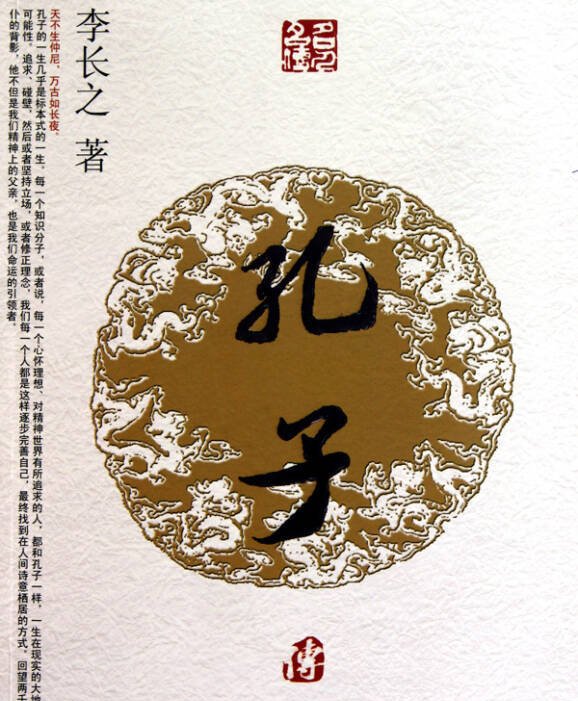 孔子
傳
李长之 著
天不生仲尼，万古如长夜。
孔子的一生几乎是标本式的一生，每一个知识分子，或者说，每一个心怀理想、对精神世界有所追求的人，都和孔子一样，一生在现实的大地
可能性。追求，碰壁，然后或者坚持立场，或者修正理念，我们每一个人都是这样逐步完善自己，最终找到在人间诗意栖居的方式。回望两千
仆的背影，他不但是我们精神上的父亲，也是我们命运的引领者。